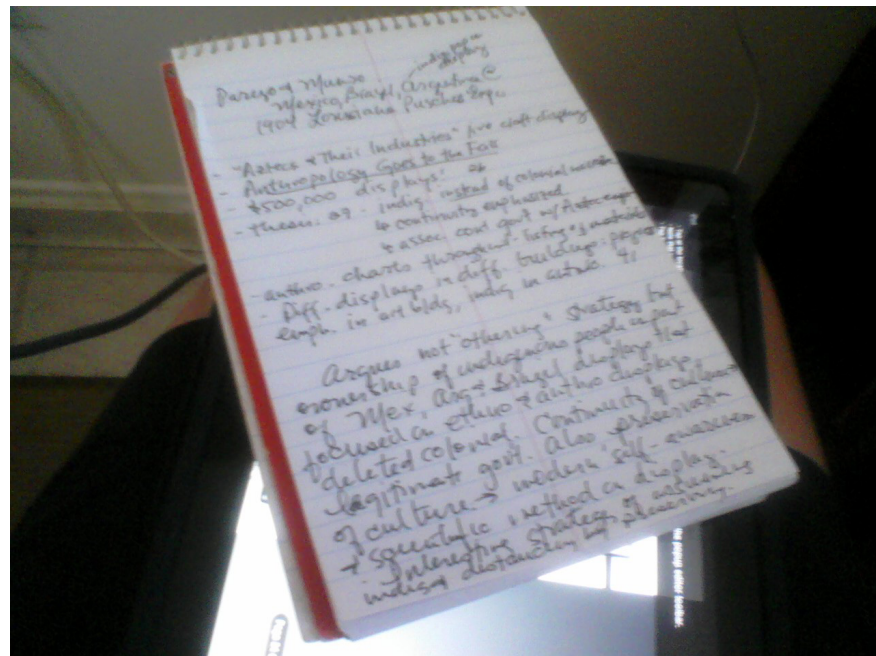 Parezo & Munro
indig. people display
Mexico, Brazil, Argentina @
1904 Louisiana Purchase Expo.
- "Aztecs & Their Industries" live craft display
- Anthropology Goes to the Fair
- $500,000 displays
- indig. instead of colonial
↳ continuity emphasized
& assoc. govt w/ Aztec
- anthro. charts throughout - listing of materials
- Diff. displays in diff. buildings:
emph. in art bldg, indig in
Argues not "othering" strategy but
ownership of indigenous people in part
of Mex, Arg & Brazil displays that
focused on ethno & anthro displays,
deleted colonial. Continuity of culture
legitimate govt. Also preservation
of culture → modern self-awareness
+ scientific method on display.
Interesting strategy of
indig. by